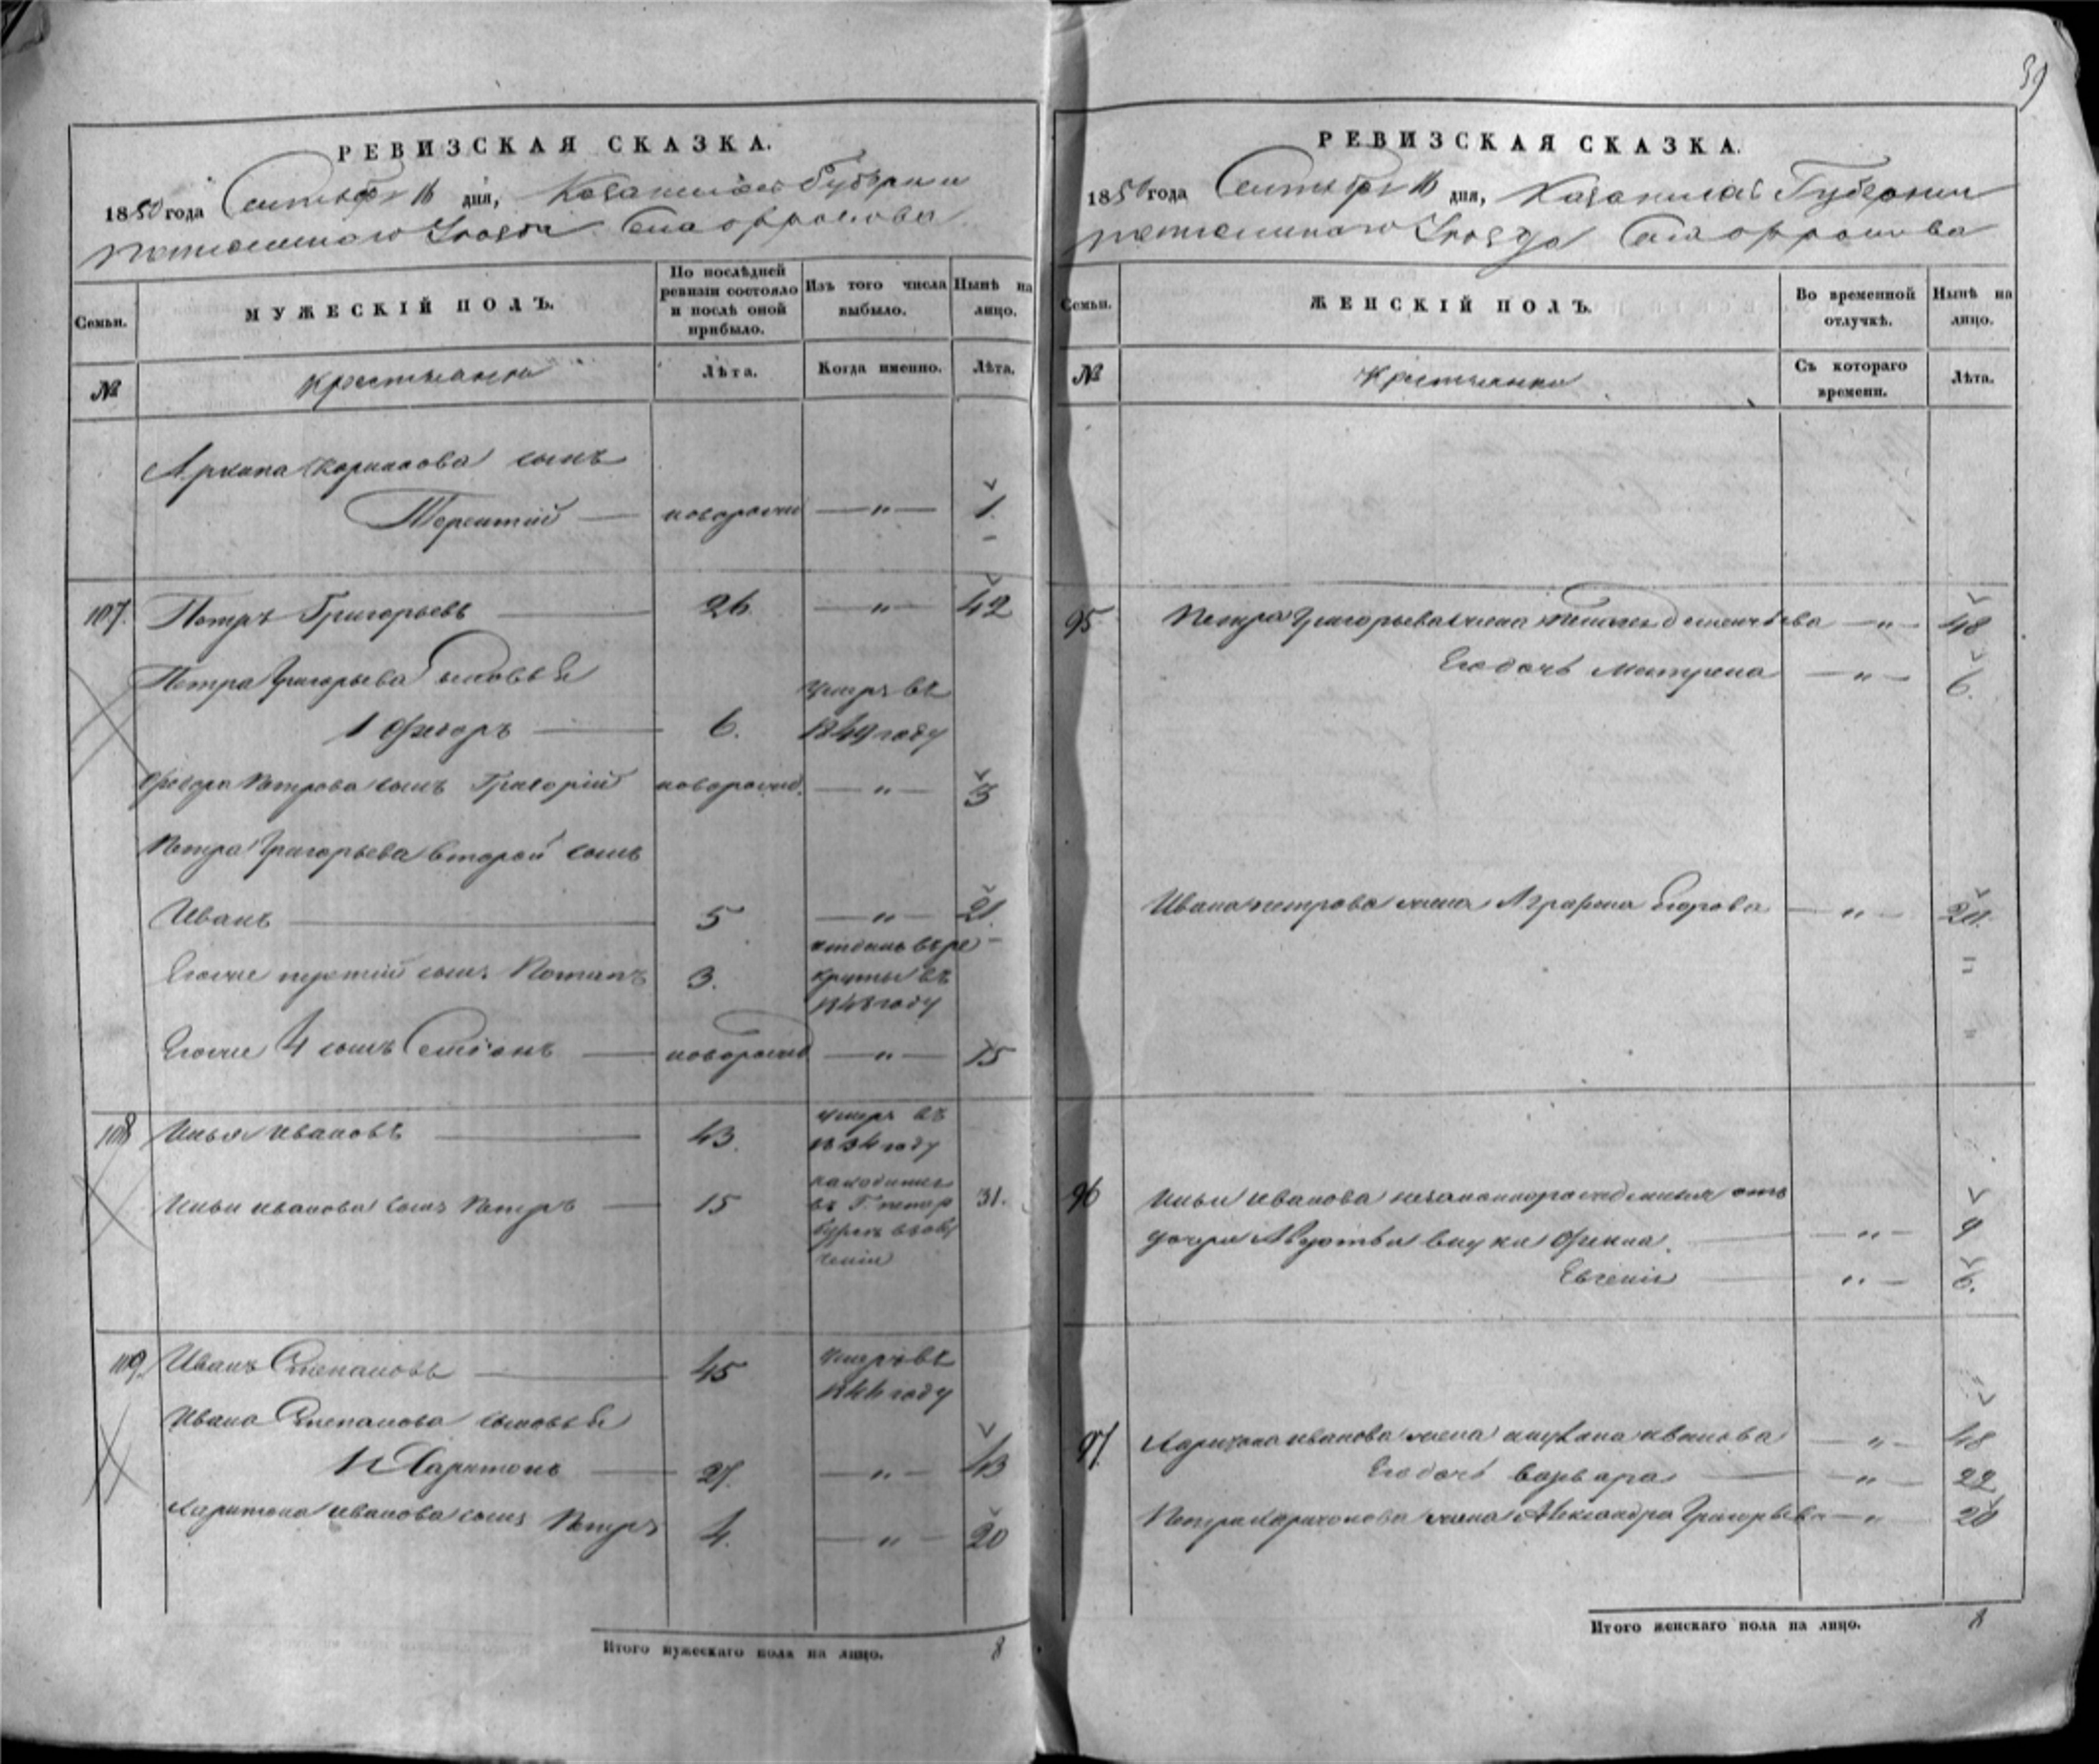 39
РЕВИЗСКАЯ СКАЗКА.
1850 года Сентября 16 дня, Казанской Губернии
Уезда Села
Семьи.
МУЖЕСКІЙ ПОЛЪ.
По послѣдней ревизіи состояло и послѣ оной прибыло.
Изъ того числа выбыло.
Нынѣ на лицо.
№
Крестьяне
Лѣта.
Когда именно.
Лѣта.
Архипа Кирилова сынъ
Терентій — новорожд — " — 1
107. Петръ Григорьевъ — 26. — " — 42
Петра Григорьева сыновья
1 Федоръ — 6. умеръ въ 1849 году
Федора Петрова сынъ Григорій новорожд. — " — 3
Петра Григорьева второй сынъ
Иванъ — 5 — " — 21.
Егоже третій сынъ Потапъ 3. отданъ въ рекруты въ 1848 году
Егоже 4 сынъ — новорожд — " — 15
108 Илья Ивановъ — 43. умеръ въ 1834 году
Ильи Иванова сынъ Петръ — 15 находится въ Г. Петербурге 31.
109. Иванъ Степановъ — 45 умеръ въ году
Ивана Степанова сыновья
1 Харитонъ — 27. — " — 43
Харитона Иванова сынъ Петръ 4. — " — 20
Итого мужескаго пола на лицо. 8
РЕВИЗСКАЯ СКАЗКА.
1850 года Сентября 16 дня, Казанской Губернии
Уезда Села
Семьи.
ЖЕНСКІЙ ПОЛЪ.
Во временной отлучкѣ.
Нынѣ на лицо.
№
Крестьянки
Съ котораго времени.
Лѣта.
95 Петра Григорьева жена — " — 48
Егодочь Матрена — " — 6.
Ивана Петрова жена Аграфена Егорова — " — 20.
96 Ильи Иванова незаконнорожденныя отъ
дочери внуки Фекла. — " — 9
Евгенія — " — 6.
97. Харитона Иванова жена Иванова — " — 48
Егодочь Варвара — " — 22
Петра Харитонова жена Александра Григорьева — " — 20
Итого женскаго пола на лицо. 8